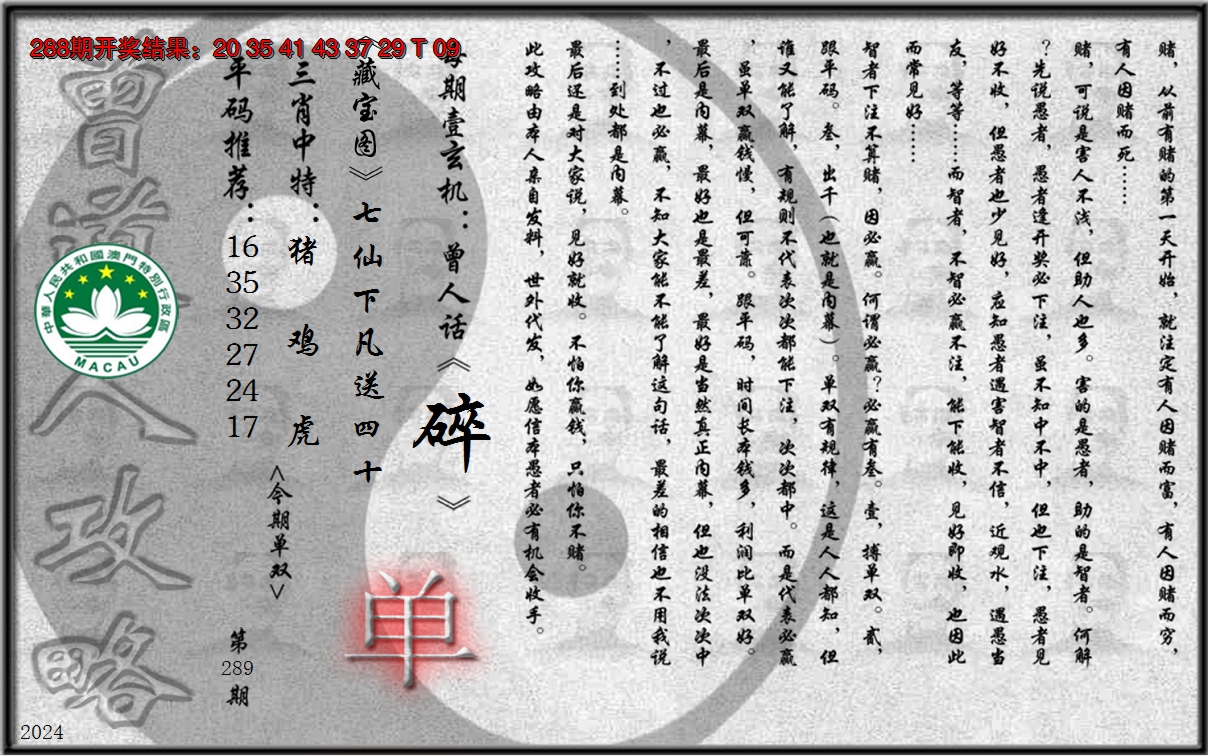 288期开奖结果：20 35 41 43 37 29 T 09
赌，从前有赌的第一天开始，就注定有人因赌而富，有人因赌而穷，
有人因赌而死……
赌，可说是害人不浅，但助人也多。害的是愚者，助的是智者。何解
？先说愚者，愚者逢开奖必下注，虽不知中不中，但也下注，愚者见
好不收，但愚者也少见好，应知愚者遇害智者不信，近观水，遇愚当
友，等等……而智者，不智必赢不注，能下能收，见好即收，也因此
而常见好……
智者下注不算赌，因必赢。何谓必赢？必赢有叁。壹，搏单双。贰，
跟平码。叁，出千（也就是内幕）。单双有规律，这是人人都知，但
谁又能了解，有规则不代表次次都能下注，次次都中。而是代表必赢
，虽单双赢钱慢，但可靠。跟平码，时间长本钱多，利润比单双好。
最后是内幕，最好也是最差，最好是当然真正内幕，但也没法次次中
，不过也必赢，不知大家能不能了解这句话，最差的相信也不用我说
……到处都是内幕。
最后还是对大家说，见好就收。不怕你赢钱，只怕你不赌。
此攻略由本人亲自发料，世外代发，如愿信本愚者必有机会收手。
每期壹玄机：曾人话《碎》
《藏宝图》七仙下凡送四十
单
三肖中特：猪 鸡 虎
<今期单双>
平码推荐：16 35 32 27 24 17
第289期
曾道人攻略
中華人民共和國澳門特別行政區
MACAU
2024